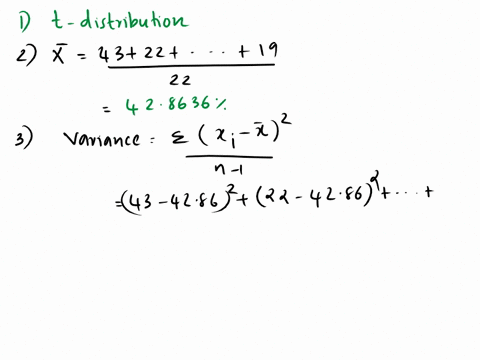 1) t-distribution
2) x̄ = 43+22+ ‧‧‧ + 19 / 22
= 42.8636%
3) Variance = Σ (xᵢ - x̄)² / n-1
=(43-42.86)² + (22 - 42.86)² + ‧‧‧ +